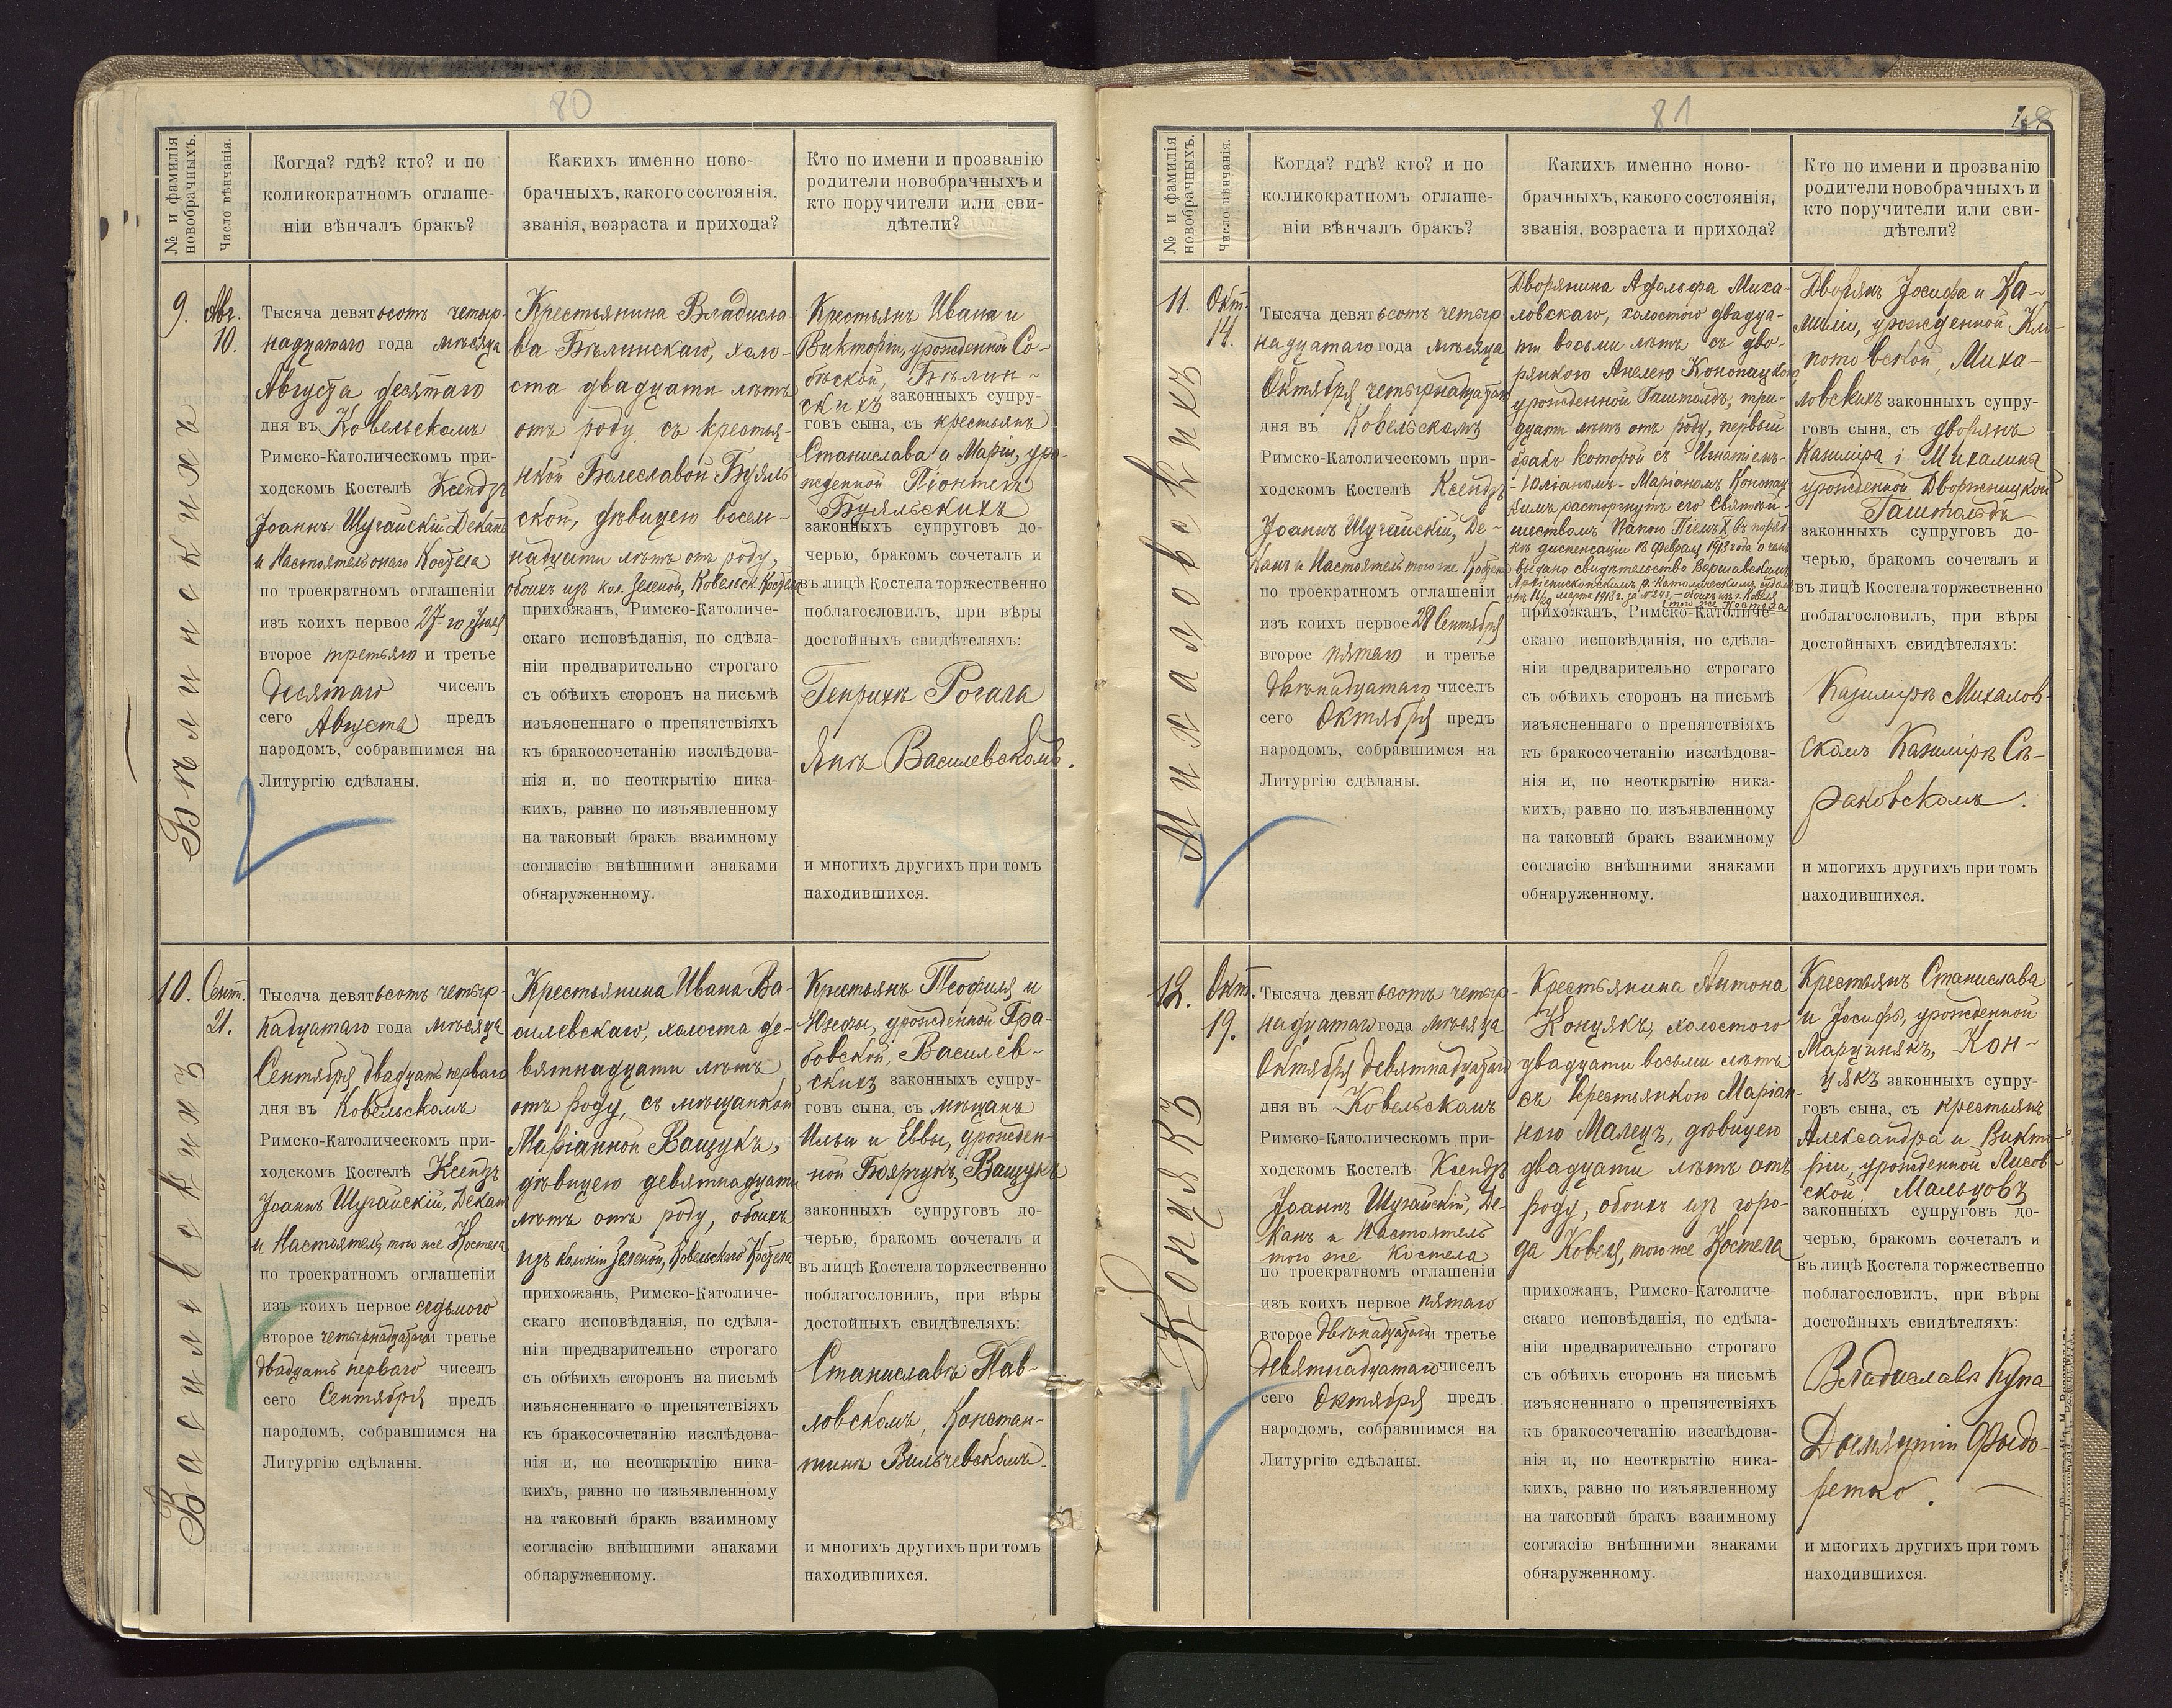 80
№ и фамилія новобрачныхъ.
Число вѣнчанія.
Когда? гдѣ? кто? и по
коликократномъ оглаше-
ніи вѣнчалъ бракъ?
Какихъ именно ново-
брачныхъ, какого состоянія,
званія, возраста и прихода?
Кто по имени и прозванію
родители новобрачныхъ и
кто поручители или сви-
дѣтели?
9.
Бѣлинскихъ
Авг.
10.
Тысяча девятьсотъ четыр-
надцатаго года мѣсяца
Августа десятаго
дня въ Ковельскомъ
Римско-Католическомъ при-
ходскомъ Костелѣ Ксендзъ
Іоаннъ Шугайскій Деканъ
и Настоятель онаго Костела
по троекратномъ оглашеніи
изъ коихъ первое 27-го Іюля
второе третьяго и третье
десятаго чиселъ
сего Августа предъ
народомъ, собравшимся на
Литургію сдѣланы.
Крестьянина Владисла-
ва Бѣлинскаго, холо-
ста двадцати лѣтъ
отъ роду, съ крестья-
нкой Болеславой Буяль-
ской, дѣвицею восем-
надцати лѣтъ отъ роду,
обоихъ изъ кол. Зеленой, Ковельск. Костела
прихожанъ, Римско-Католиче-
скаго исповѣданія, по сдѣла-
ніи предварительно строгаго
съ обѣихъ сторонъ на письмѣ
изъясненнаго о препятствіяхъ
къ бракосочетанію изслѣдова-
нія и, по неоткрытію ника-
кихъ, равно по изъявленному
на таковый бракъ взаимному
согласію внѣшними знаками
обнаруженному.
Крестьянъ Ивана и
Викторіи, урожденной Со-
бѣской, Бѣлин-
скихъ законныхъ супру-
говъ сына, съ крестьянъ
Станислава и Маріи, уро-
жденной Піонтекъ
Буяльскихъ
законныхъ супруговъ до-
черью, бракомъ сочеталъ и
въ лицѣ Костела торжественно
поблагословилъ, при вѣры
достойныхъ свидѣтеляхъ:
Генрихъ Рогала
Янъ Василевскомъ.
и многихъ другихъ при томъ
находившихся.
10.
Василевскихъ
Сент.
21.
Тысяча девятьсотъ четыр-
надцатаго года мѣсяца
Сентября двадцать перваго
дня въ Ковельскомъ
Римско-Католическомъ при-
ходскомъ Костелѣ Ксендзъ
Іоаннъ Шугайскій, Деканъ
и Настоятель того же Костела
по троекратномъ оглашеніи
изъ коихъ первое седьмого
второе четырнадцатаго и третье
двадцать перваго чиселъ
сего Сентября предъ
народомъ, собравшимся на
Литургію сдѣланы.
Крестьянина Ивана Ва-
силевскаго, холоста де-
вятнадцати лѣтъ
отъ роду, съ мѣщанкой
Маріанной Ващукъ,
дѣвицею девятнадцати
лѣтъ отъ роду, обоихъ
изъ колоніи Зеленой, Ковельскаго Костела
прихожанъ, Римско-Католиче-
скаго исповѣданія, по сдѣла-
ніи предварительно строгаго
съ обѣихъ сторонъ на письмѣ
изъясненнаго о препятствіяхъ
къ бракосочетанію изслѣдова-
нія и, по неоткрытію ника-
кихъ, равно по изъявленному
на таковый бракъ взаимному
согласію внѣшними знаками
обнаруженному.
Крестьянъ Теофиля и
Юзефы, урожденной Гра-
бовской, Василев-
скихъ законныхъ супру-
говъ сына, съ мѣщанъ
Ильи и Еввы, урожден-
ной Боярчукъ, Ващукъ
законныхъ супруговъ до-
черью, бракомъ сочеталъ и
въ лицѣ Костела торжественно
поблагословилъ, при вѣры
достойныхъ свидѣтеляхъ:
Станиславъ Пав-
ловскомъ, Констан-
тинъ Вильчевскомъ
и многихъ другихъ при томъ
находившихся.
81
48
№ и фамилія новобрачныхъ.
Число вѣнчанія.
Когда? гдѣ? кто? и по
коликократномъ оглаше-
ніи вѣнчалъ бракъ?
Какихъ именно ново-
брачныхъ, какого состоянія,
званія, возраста и прихода?
Кто по имени и прозванію
родители новобрачныхъ и
кто поручители или сви-
дѣтели?
11.
Михаловскихъ
Окт.
14.
Тысяча девятьсотъ четыр-
надцатаго года мѣсяца
Октября четырнадцатаго
дня въ Ковельскомъ
Римско-Католическомъ при-
ходскомъ Костелѣ Ксендзъ
Іоаннъ Шугайскій, Де-
канъ и Настоятель того же Костела
по троекратномъ оглашеніи
изъ коихъ первое 28 Сентября
второе пятаго и третье
двѣнадцатаго чиселъ
сего Октября предъ
народомъ, собравшимся на
Литургію сдѣланы.
Дворянина Адольфа Миха-
ловскаго, холостого двадца-
ти восьми лѣтъ съ дво-
рянкою Анелею Конопацкою
урожденной Гаштольдъ, три-
дцати лѣтъ отъ роду, первый
бракъ которой съ Игнатіемъ-
Юліаномъ-Маріаномъ Конопац-
кимъ расторгнутъ его Святѣй-
шествомъ Папою Піемъ X въ поряд-
кѣ диспенсаціи 18 февраля 1913 года о чемъ
выдано свидѣтельство Варшавскимъ
Архіепископскимъ р.-католическимъ судомъ
отъ Марта 1913 г. за № 242, - обоихъ изъ г. Ковеля
того же Костела
прихожанъ, Римско-Католиче-
скаго исповѣданія, по сдѣла-
ніи предварительно строгаго
съ обѣихъ сторонъ на письмѣ
изъясненнаго о препятствіяхъ
къ бракосочетанію изслѣдова-
нія и, по неоткрытію ника-
кихъ, равно по изъявленному
на таковый бракъ взаимному
согласію внѣшними знаками
обнаруженному.
Дворянъ Іосифа и Ка-
миліи, урожденной Кло-
потовской, Миха-
ловскихъ законныхъ супру-
говъ сына, съ дворянъ
Казиміра і Михалина
урожденной Дворжицкой
Гаштольдъ
законныхъ супруговъ до-
черью, бракомъ сочеталъ и
въ лицѣ Костела торжественно
поблагословилъ, при вѣры
достойныхъ свидѣтеляхъ:
Казиміръ Михалов-
скомъ Казиміръ Сѣ-
раковскомъ.
и многихъ другихъ при томъ
находившихся.
12.
Концякъ
Окт.
19.
Тысяча девятьсотъ четыр-
надцатаго года мѣсяца
Октября девятнадцатаго
дня въ Ковельскомъ
Римско-Католическомъ при-
ходскомъ Костелѣ Ксендзъ
Іоаннъ Шугайскій, Де-
канъ и Настоятель
того же Костела
по троекратномъ оглашеніи
изъ коихъ первое пятаго
второе двѣнадцатаго и третье
девятнадцатаго чиселъ
сего Октября предъ
народомъ, собравшимся на
Литургію сдѣланы.
Крестьянина Антона
Концякъ, холостого
двадцати восьми лѣтъ
съ крестьянкою Маріан-
ною Малецъ, дѣвицею
двадцати лѣтъ отъ
роду, обоихъ изъ горо-
да Ковеля, того же Костела
прихожанъ, Римско-Католиче-
скаго исповѣданія, по сдѣла-
ніи предварительно строгаго
съ обѣихъ сторонъ на письмѣ
изъясненнаго о препятствіяхъ
къ бракосочетанію изслѣдова-
нія и, по неоткрытію ника-
кихъ, равно по изъявленному
на таковый бракъ взаимному
согласію внѣшними знаками
обнаруженному.
Крестьянъ Станислава
и Іосифы, урожденной
Марцинякъ, Кон-
цякъ законныхъ супру-
говъ сына, съ крестьянъ
Александра и Викто-
ріи, урожденной Лисов-
ской, Мальцовъ
законныхъ супруговъ до-
черью, бракомъ сочеталъ и
въ лицѣ Костела торжественно
поблагословилъ, при вѣры
достойныхъ свидѣтеляхъ:
Владиславъ Купа
Федо-
ретко.
и многихъ другихъ при томъ
находившихся.